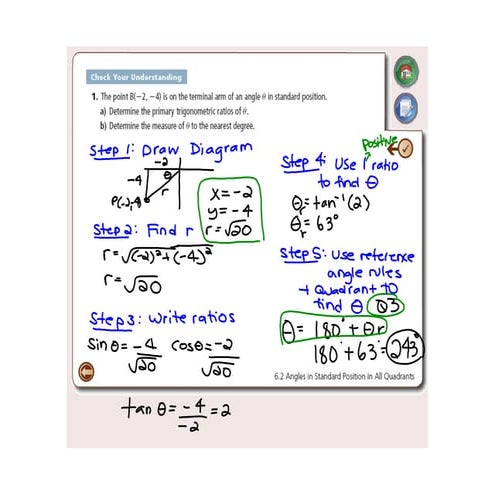 Check Your Understanding
1. The point B(−2, −4) is on the terminal arm of an angle θ in standard position.
a) Determine the primary trigonometric ratios of θ.
b) Determine the measure of θ to the nearest degree.
Step 1: Draw Diagram
-2
-4
θ
r
P(-2,-4)
x = -2
y = -4
r = √20
Step 2: Find r
r = √(-2)² + (-4)²
r = √20
Step 3: Write ratios
sinθ = -4/√20 cosθ = -2/√20
tan θ = -4/-2 = 2
positive
Step 4: Use 1 ratio
to find θ
θr = tan⁻¹(2)
θr = 63°
Step 5: Use reference
angle rules
+ Quadrant to
find θ Q3
θ = 180° + θr
180° + 63° = 243°
6.2 Angles in Standard Position in All Quadrants